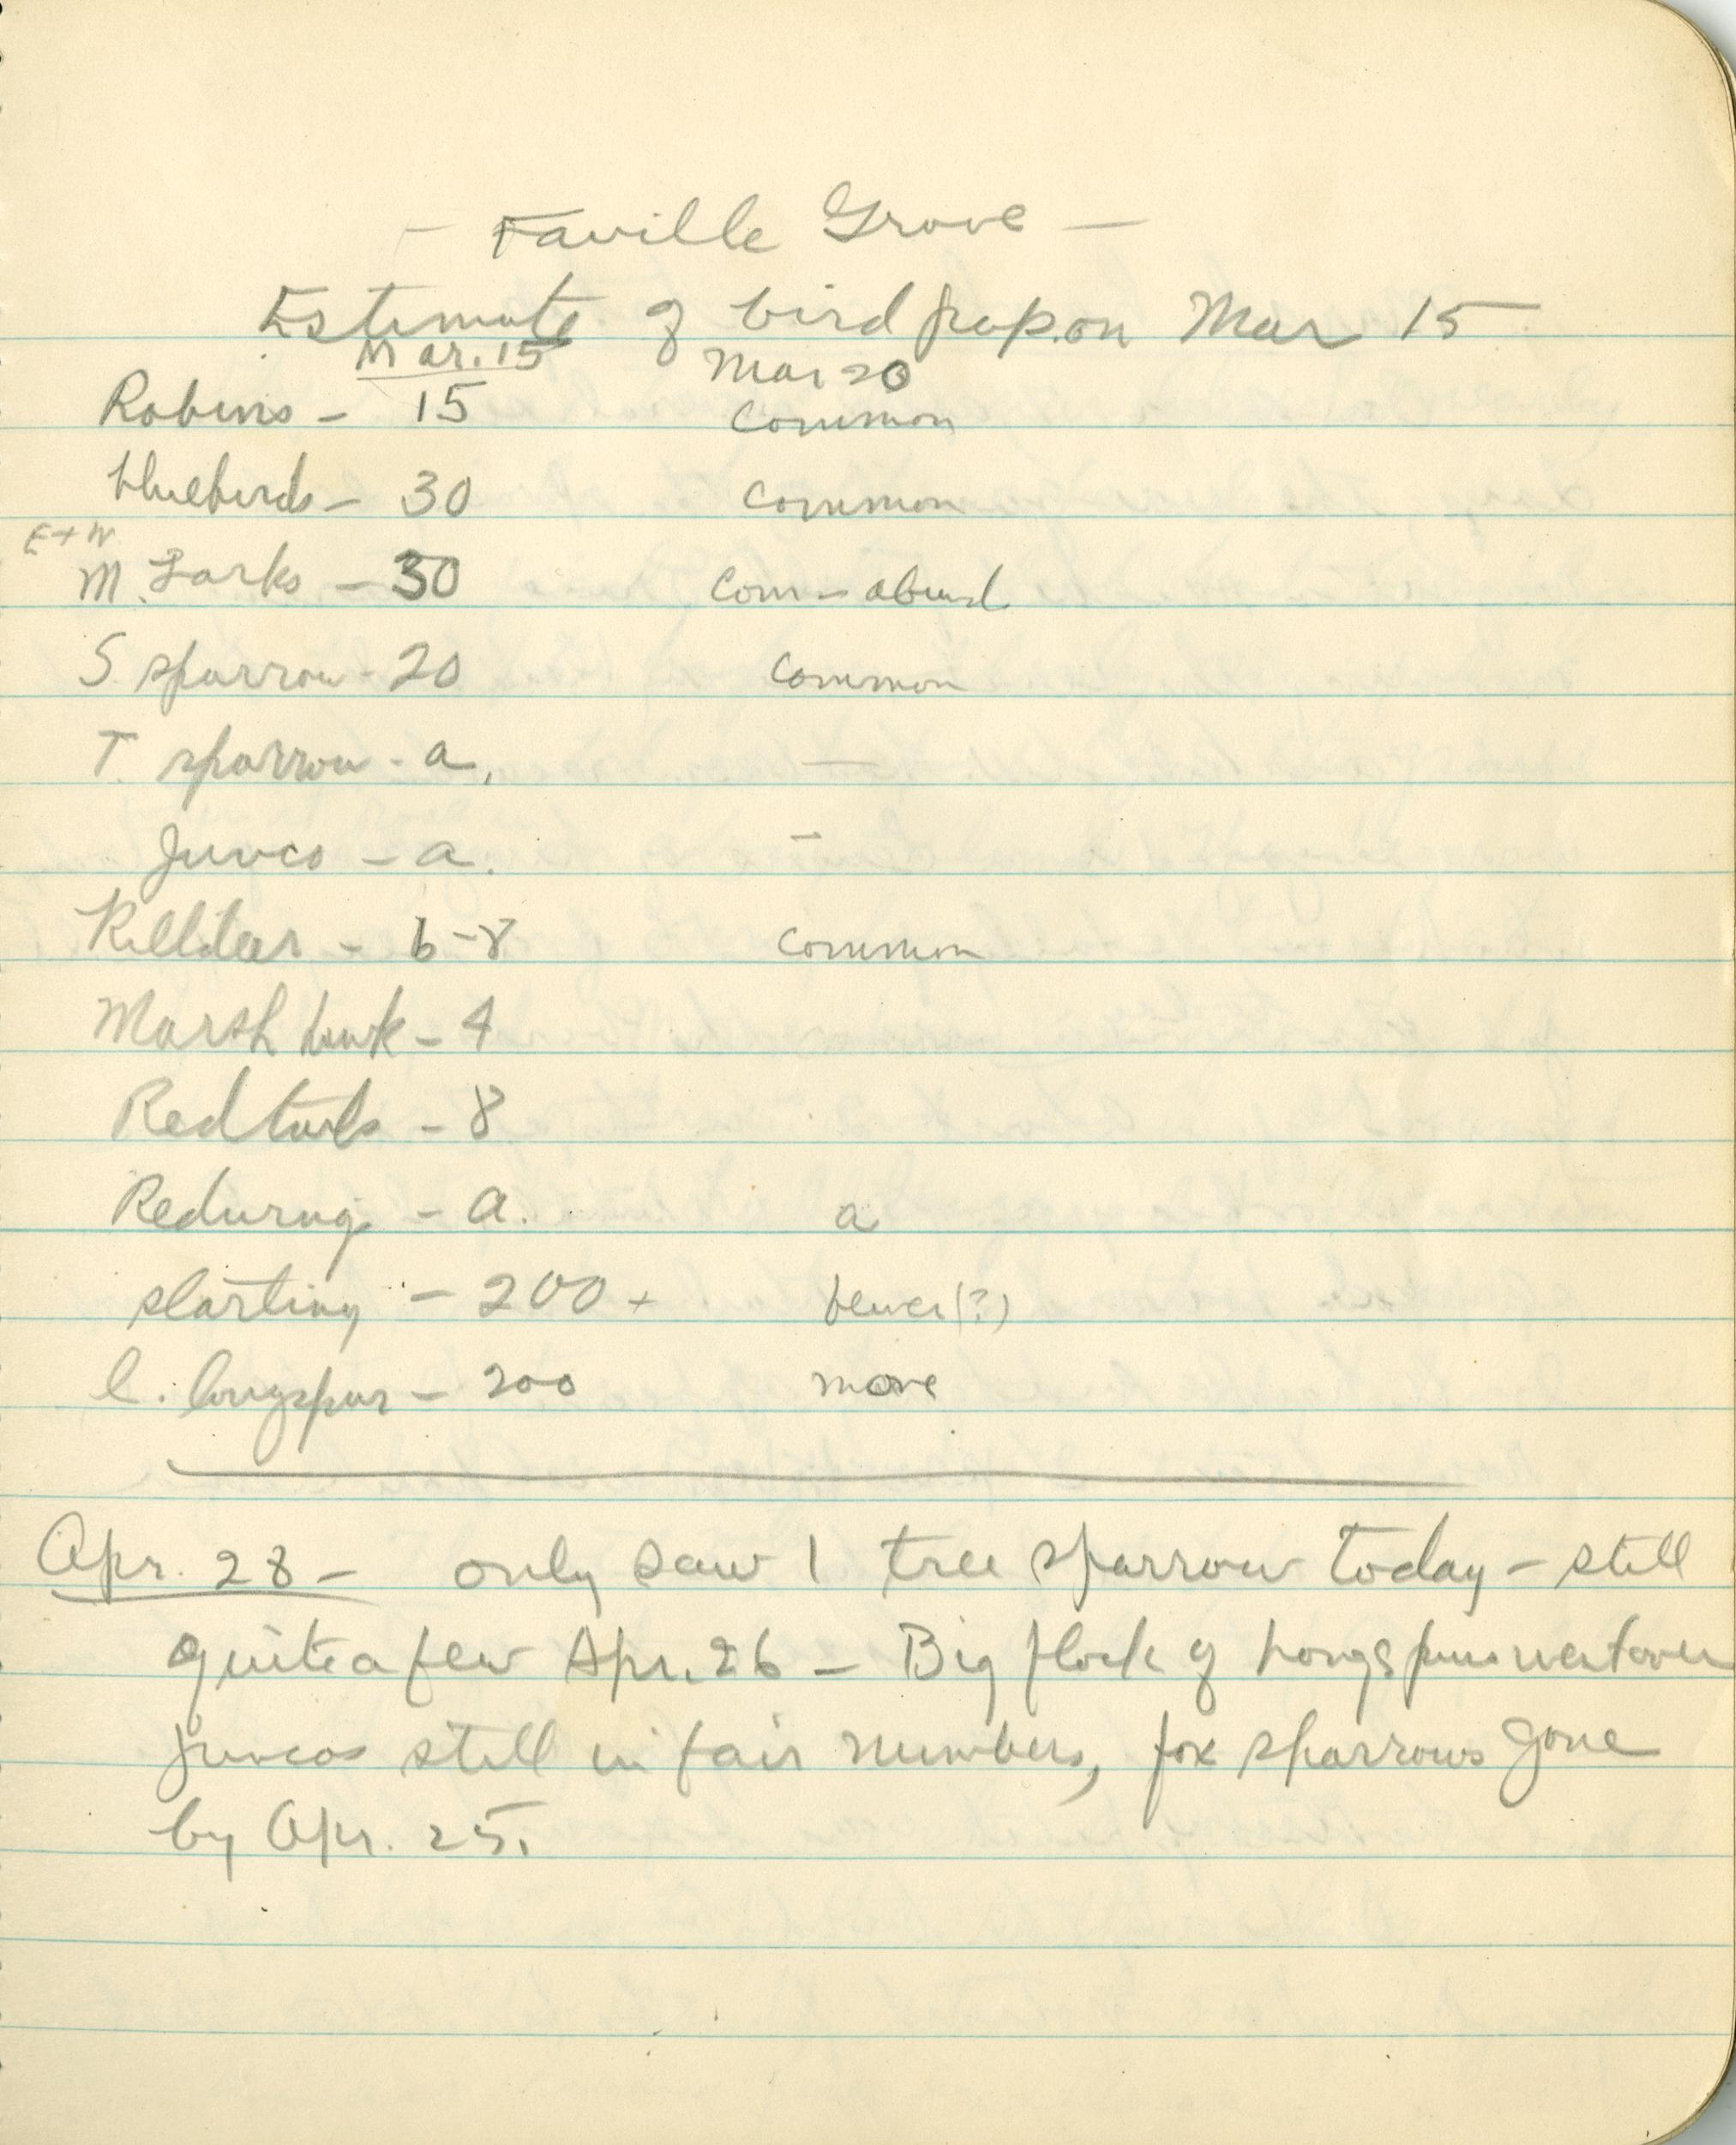 - Faville Grove -
Estimate of bird pop. on Mar 15
Mar. 15 Mar 20
Robins - 15 Common
bluebirds - 30 Common
E + W
M. Larks - 30 Com - abund
S. sparrow - 20 Common
T. sparrow - a. -
Junco - a. -
Killdeer - 6-8 Common
Marsh hawk - 4
Redtails - 8
Redwing - a. a
starling - 200 + fewer (?)
l. longspur - 200 more
Apr. 28 - only saw 1 tree sparrow today - still
quite a few Apr. 26 - Big flock of longspurs went over
juncos still in fair numbers, fox sparrows gone
by Apr. 25.